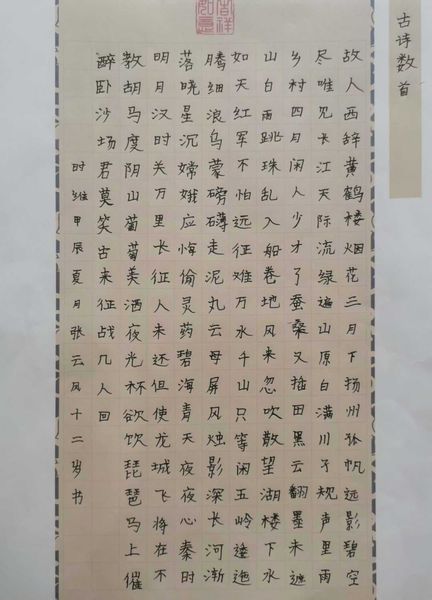 古诗数首
故人西辞黄鹤楼烟花三月下扬州孤帆远影碧空
尽唯见长江天际流绿遍山原白满川子规声里雨
乡村四月闲人少才了蚕桑又插田黑云翻墨未遮
山白雨跳珠乱入船卷地风来忽吹散望湖楼下水
如天红军不怕远征难万水千山只等闲五岭逶迤
腾细浪乌蒙磅礴走泥丸云母屏风烛影深长河渐
落晓星沉嫦娥应悔偷灵药碧海青天夜夜心秦时
明月汉时关万里长征人未还但使龙城飞将在不
教胡马度阴山葡萄美酒夜光杯欲饮琵琶马上催
醉卧沙场君莫笑古来征战几人回
时维甲辰夏月张云风十二岁书
吉祥如意